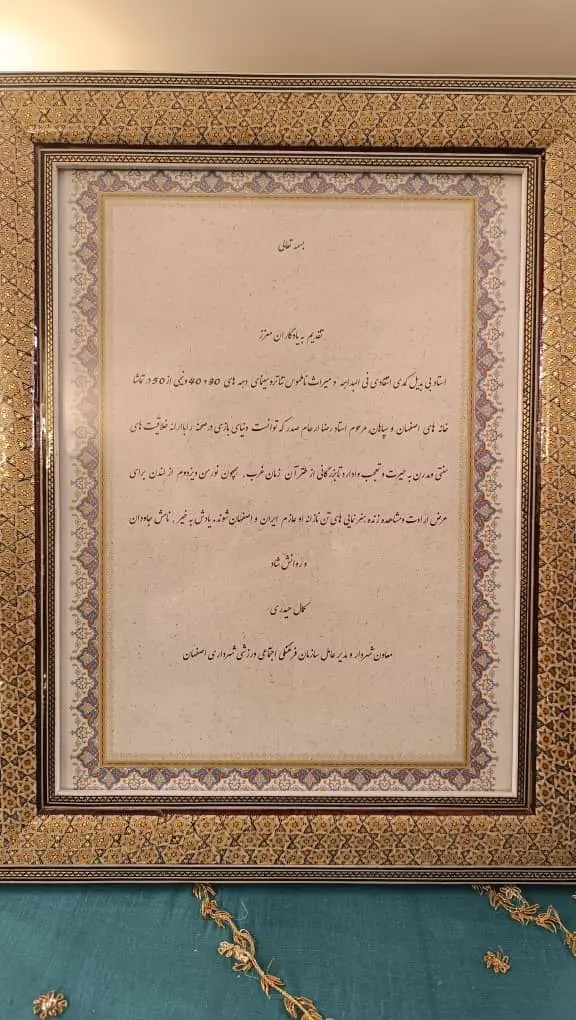 بسمه تعالی
تقدیم به یادگاران معزز
استاد بی بدیل کمدی انتقادی فی البداهه و میراث ناملموس تئاتر و سینمای دهه های 30 و 40 و نیمی از 50 در تماشا
خانه های اصفهان و سپاهان، مرحوم استاد رضا ارحام صدر که توانست دنیای بازی در صحنه را با ارائه خلاقیت های
سنتی و مدرن به حیرت و تعجب وادارد تا بزرگانی از هنر آن زمان غرب، همچون نورمن ویزدوم از لندن برای
عرض ارادت و مشاهده زنده هنرنمایی های تن نازانه او عازم ایران و اصفهان شوند، یادش به خیر، نامش جاودان
و روانش شاد
کمال حیدری
معاون شهردار و مدیر عامل سازمان فرهنگی اجتماعی ورزشی شهرداری اصفهان